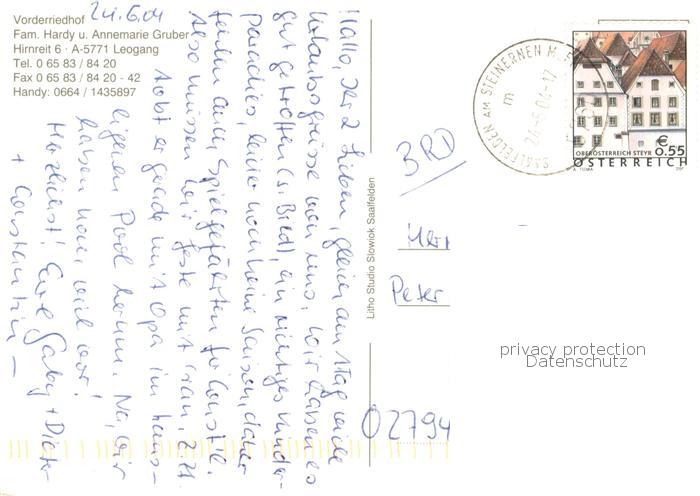 24.6.04
Vorderriedhof
Fam. Hardy u. Annemarie Gruber
Hirnreit 6 · A-5771 Leogang
Tel. 0 65 83 / 84 20
Fax 0 65 83 / 84 20 - 42
Handy: 0664 / 1435897
Hallo, Ihr 2 Lieben, gleich am 1. Tag viele
Urlaubsgrüsse von uns. Wir haben es
gut getroffen (s. Bild), ein richtiges Kinder-
paradies, leider noch keine Saison, daher
fehlen auch Spielgefährten für Consti.
Also müssen wir feste mit ran, z.Zt.
tobt er gerade mit Opa im haus-
eigenen Pool herum. Na, wir
haben noch viel vor!
Herzlichst! Eure Gaby + Dieter
+ Constantin –
Litho Studio Slowiok Saalfelden
SAALFELDEN AM STEINERNEN MEER
24.-6.04-17
m
OBERÖSTERREICH STEYR
€ 0.55
ÖSTERREICH
A. TUMA
BRD
Herr
Peter
privacy protection
Datenschutz
02794